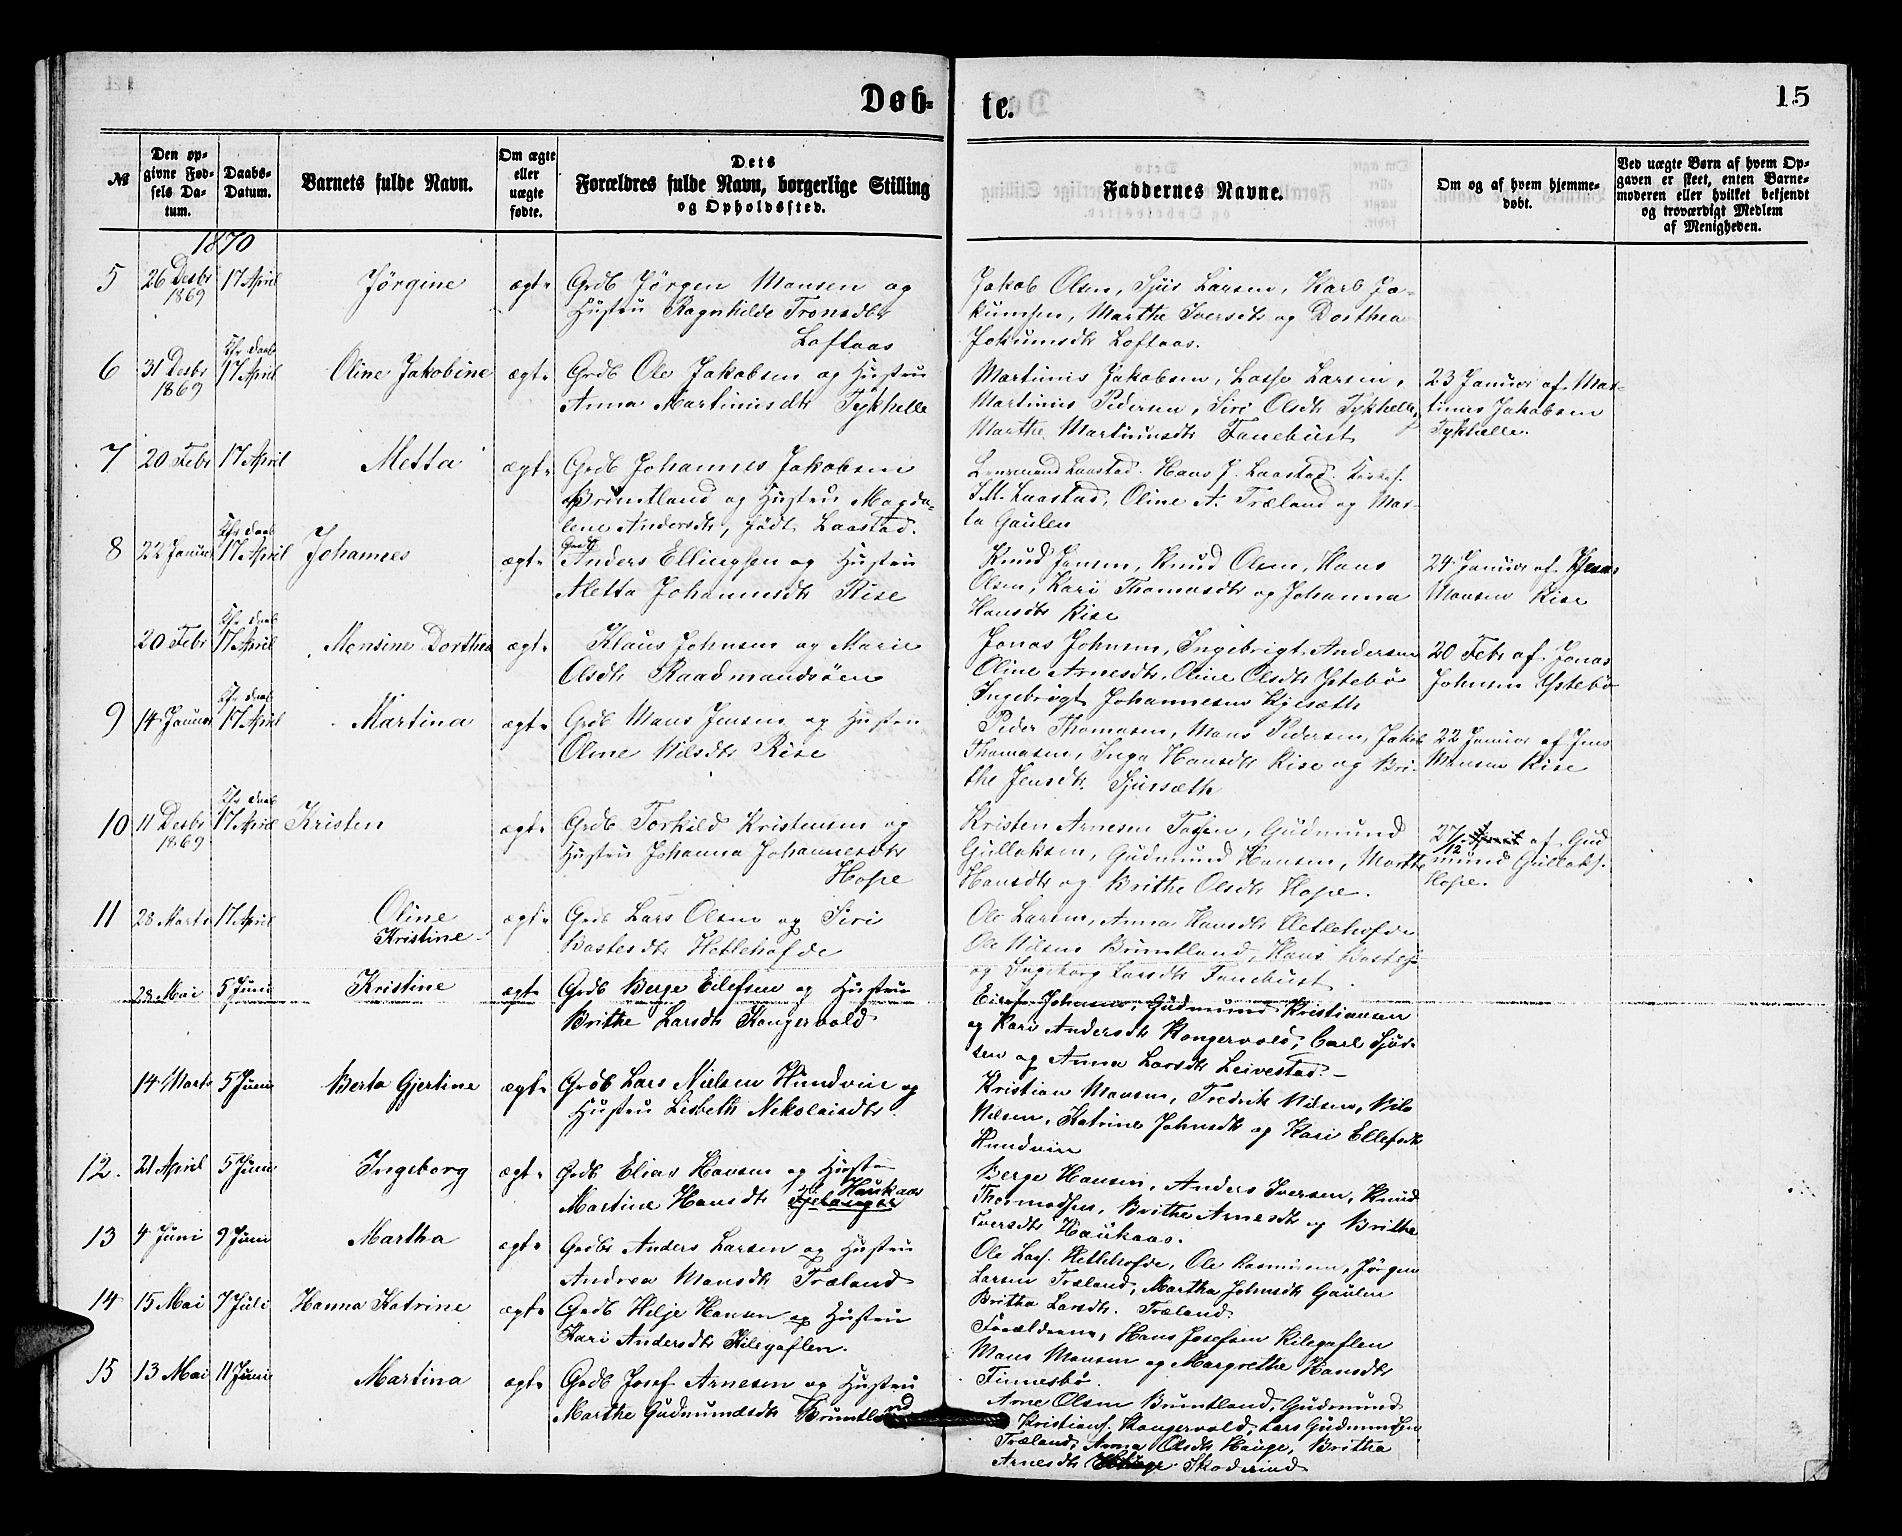 Døb-
te.
15
№
Den op-
givne Fød-
sels Da-
tum.
Daabs-
Datum.
Barnets fulde Navn.
Om ægte
eller
uægte
fødte.
Dets
Forældres fulde Navn, borgerlige Stilling
og Opholdssted.
Faddernes Navne.
Om og af hvem hjemme-
døbt.
Ved uægte Børn af hvem Op-
gaven er skeet, enten Barne-
moderen eller hvilket bekjendt
og troværdigt Medlem
af Menigheden.
1870
5 26 Desbr 1869 17 April Jørgine ægte
Grdb Jørgen Monsen og
Hustru Ragnhilde Tronsdtr
Loftaas
Jakob Olsen, Sjur Larsen, Karl Jo-
kumsen, Marthe Iversdtr og Dorthea
Jokumsdtr Loftaas.
6 31 Desbr 1869 Chr daab 17 April Oline Jakobine ægte
Grdb Ole Jakobsen og Hustru
Anna Martinusdtr Tykhelle
Martinus Jakobsen, Lasse Larsen,
Martinus Pedersen, Siri Olsdtr Tykhelle,
Marthe Martinusdtr Fanebust
23 Januar af Mar-
tinus Jakobsen
Tykhelle.
7 20 Febr 17 April Metta ægte
Grdb Johannes Jakobsen
Bruntland og Hustru Magda-
lene Andersdtr, født Laastad.
Lensmand Laastad. Hans J. Laastad.
Laastad, Oline A. Træland og Mar-
ta Gaulen
8 22 Januar Chr daab 17 April Johannes ægte
Grdb
Anders Ellingsen og Hustru
Metta Johannesdtr Rise
Knud Jensen, Knud Olsen, Hans
Olsen, Kari Thomasdtr og Johanna
Hansdtr Rise
24 Januar af
Monsen Rise
20 Febr Chr daab 17 April Monsine Dorthea ægte
Klaus Johnsen og Marie
Olsdtr Raadmandsøen
Jonas Johnsen, Ingebrigt Andersen
Oline Arnesdtr, Oline Olsdtr Ystebø
Ingebrigt Johannesen Kjesæth
20 Febr af Jonas
Johnsen Ystebø
9 14 Januar Chr daab 17 April Martina ægte
Grdb Mons Jensen og Hustru
Oline Nilsdtr Rise
Peder Thomasen, Mons Pedersen, Jakob
Thomasen, Inga Hansdtr Rise og Bri-
the Jensdtr. Sjursæth
22 Januar af Jens
Monsen Rise
10 11 Desbr 1869 Chr daab 17 April Kristen ægte
Grdb Torkild Kristensen og
Hustru Johanna Johannesdtr
Hope
Kristen Arnesen, Gudmund
Gullaksen, Gudmund Hansen, Marthe
Hansdtr og Brithe Olsdtr Hope.
27/12 af Gud
mund Gullaks.
Hope.
11 28 Marts 17 April Oline
Kristine ægte
Grdb Lars Olsen og Siri
Bastesdtr Hetlehofde
Ole Larsen, Anna Hansdtr Hetlehofde
Ole Nilsen Bruntland, Hans Bastes.
og Ingeborg Larsdtr Fanebust.
28 Mai 5 Juni Kristine ægte
Grdb Berge Eilefsen og Hustru
Brithe Larsdtr Kongervold
Johansen, Gudmund Kristiansen
og Kari Andersdtr Kongervold, Carl Sjur-
sen og Anna Larsdtr Leivestad.-
14 Marts 5 Juni Berta Gjertine ægte
Grdb Lars Nielsen Hundvin og
Hustru Lisbeth Nikolaisdtr.
Kristian Monsen, Fredrik Nilsen, Nils
Nilsen, Katrine Johnsdtr og Kari Ellefsdtr
Hundvin
12. 21 April 5 Juni Ingeborg ægte
Grdb Elias Hansen og Hustru
Martine Hansdtr Haukaas
Berge Hansen, Anders Iversen, Knud
Thormodsen, Brithe Arnesdtr og Brithe
Iversdtr Haukaas.
13 4 Juni 9 Juni Martha ægte
Grdbr Anders Larsen og Hustru
Andrea Monsdtr Træland
Ole Lars. Hetlehofde, Ole Rasmusen, Jørgen
Larsen Træland, Martha Johnsdtr Gaulen
Britha Larsdtr. Træland.
14 15 Mai 7 Juli Hanna Katrine ægte
Grdb Helje Hansen og Hustru
Kari Andersdtr Kilegaflen.
Forældrene, Hans Josefsen Kilegaflen
Mons Monsen og Margrethe Hansdtr
Finnesbø.
15 13 Mai 11 Juni Martina ægte
Grdb Josef Arnesen og Hustru
Marthe Gudmundsdtr Bruntland
Arne Olsen Bruntland, Gudmund
Kristians. Kongervold, Lars Gudmundsen
Træland, Anna Olsdtr Hauge, Britha
Arnesdtr